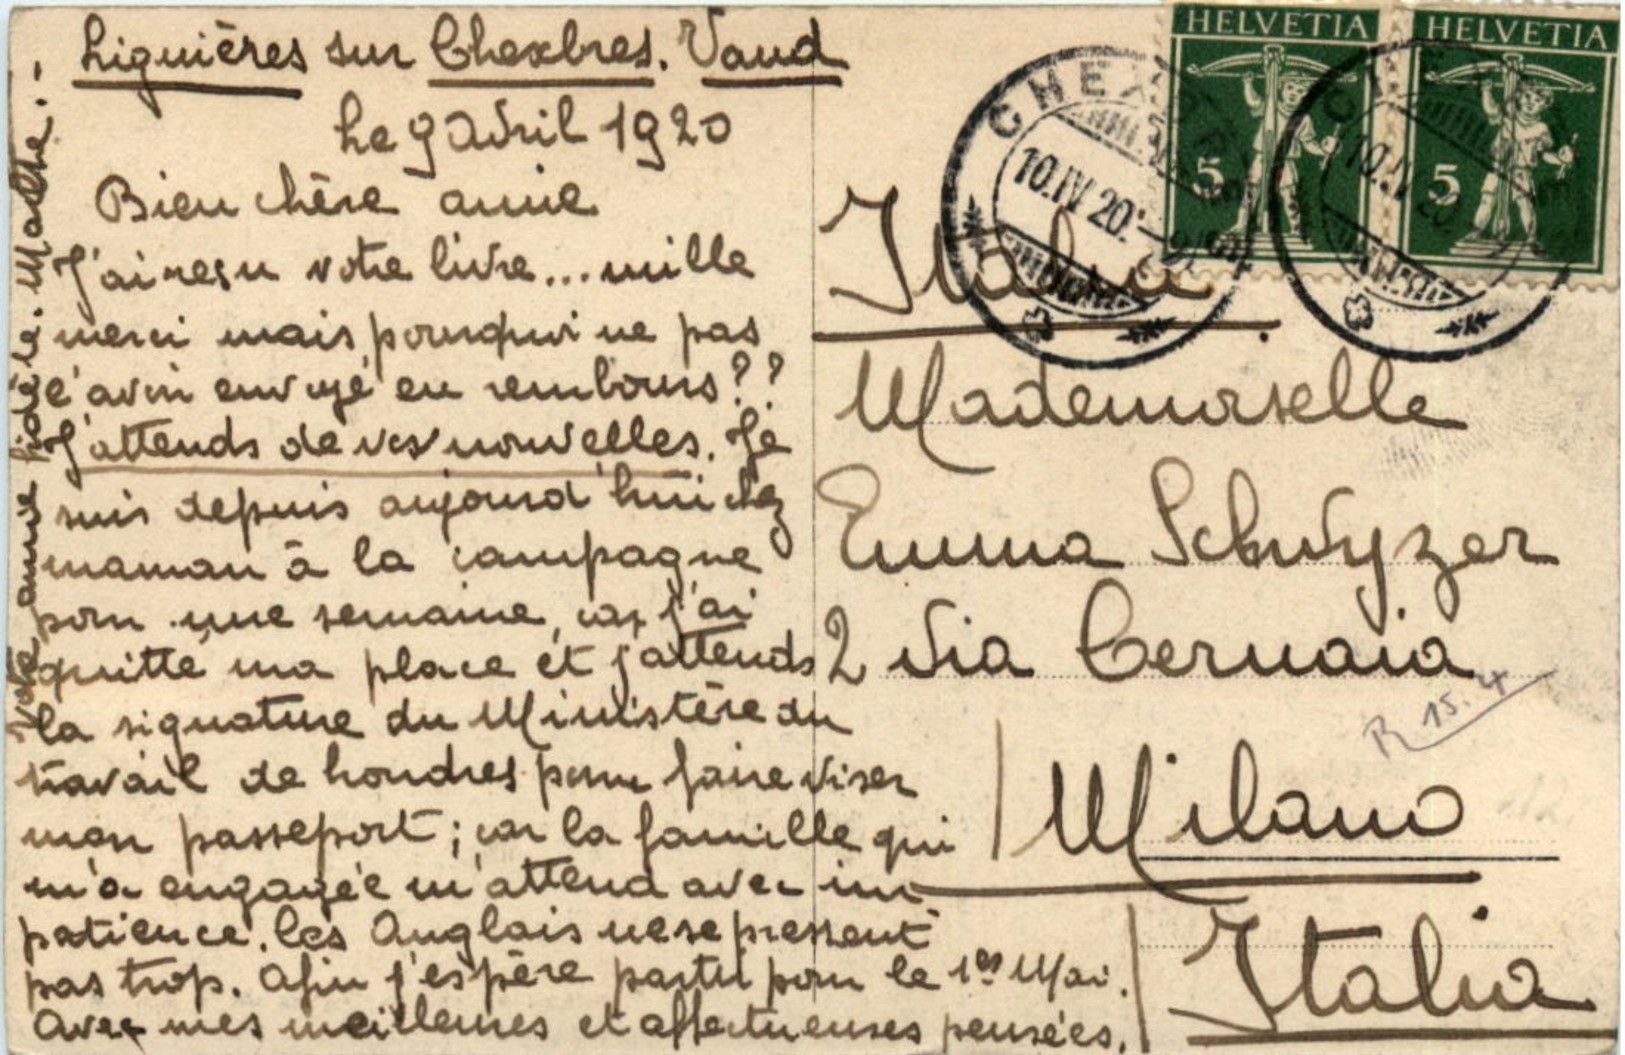 Liguières sur Chexbres. Vaud
Le 9 Avril 1920
Bien chère amie
J'ai reçu votre livre... mille
merci mais pourquoi ne pas
l'avoir envoyé en rembours??
J'attends de vos nouvelles. Je
suis depuis aujourd'hui chez
maman à la campagne
pour une semaine, car j'ai
quitté ma place et j'attends
la signature du Ministère du
travail de Londres pour faire viser
mon passeport; car la famille qui
m'a engagée m'attend avec im
patience. les Anglais ne se pressent
pas trop. Afin j'espère partir pour le 1er Mai.
Avec mes meilleures et affectueuses pensées.
Votre amie fidèle. Marthe.
HELVETIA
5
HELVETIA
5
CHEXBRES
10.IV.20.
10.IV.20.
Italia.
Mademoiselle
Emma Schwyzer
2 Via Cernaia
R 15.4
Milano
Italia